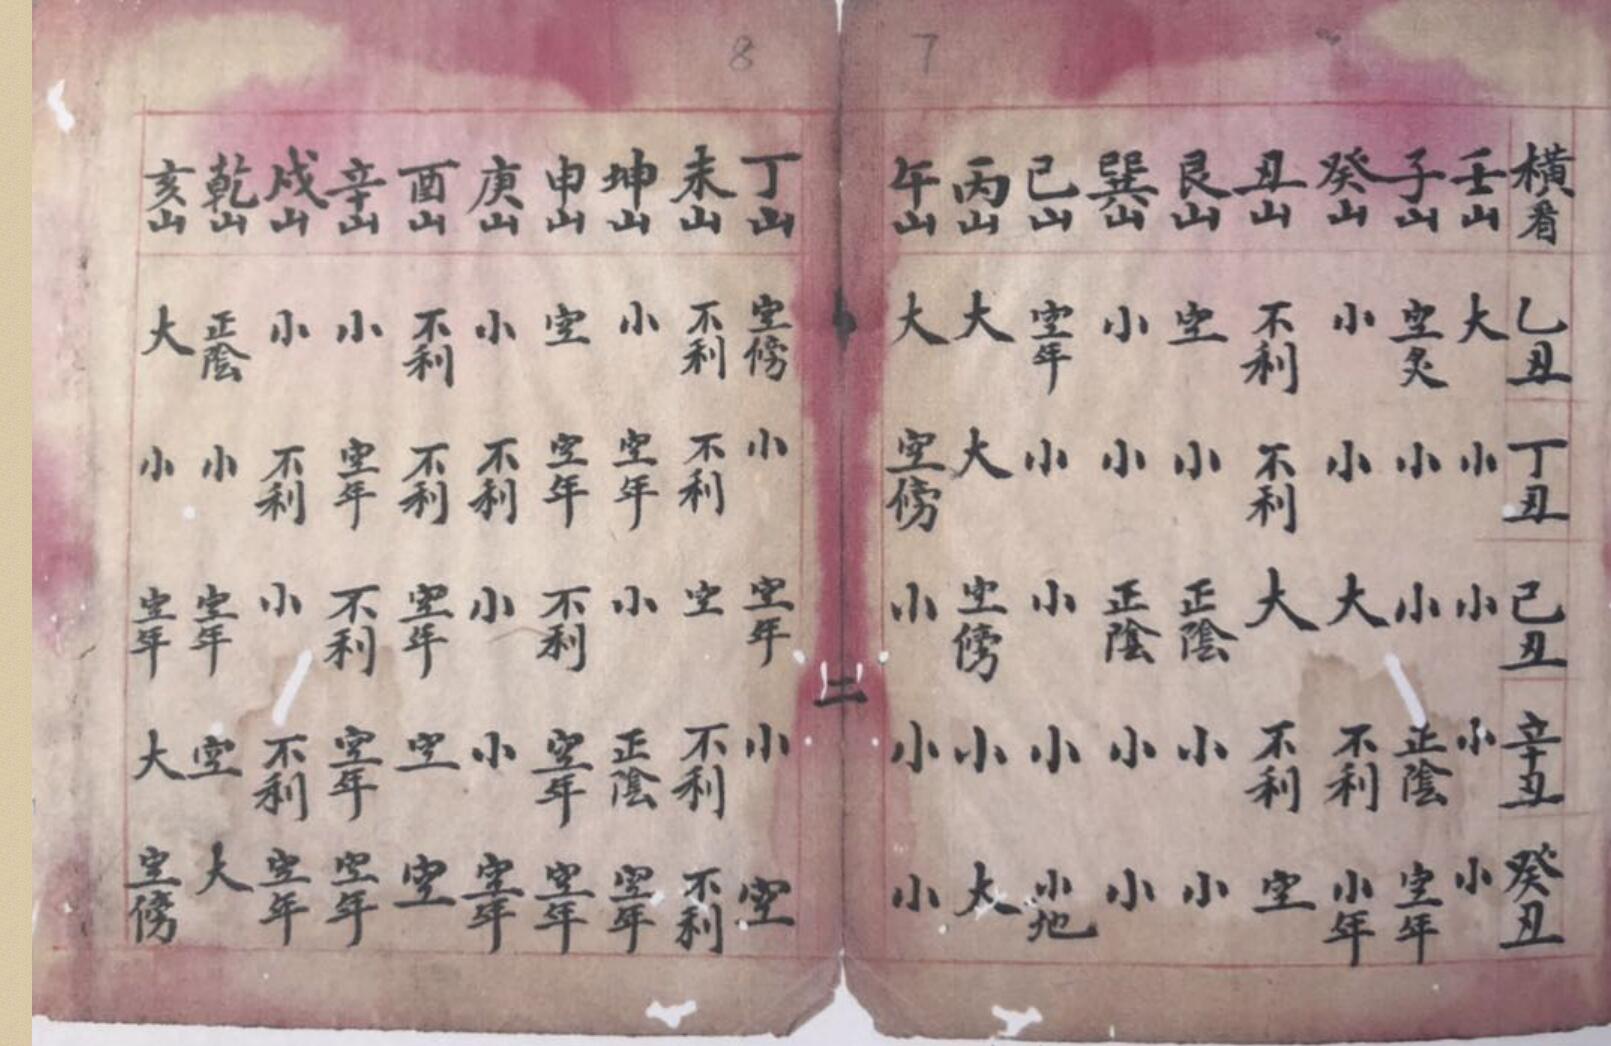 7
橫看 壬山 子山 癸山 丑山 艮山 巽山 巳山 丙山 午山 丁山 未山 坤山 申山 庚山 酉山 辛山 戌山 乾山 亥山
乙丑 大 空炙 小 不利 空 小 空年 大 大 空傍 不利 小 空 小 不利 小 小 正陰 大
丁丑 小 小 小 不利 小 小 小 大 空傍 小 不利 空年 空年 不利 不利 空年 不利 小 小
己丑 小 小 大 大 正陰 正陰 小 空傍 小 空年 空 小 不利 小 空年 不利 小 空年 空年
辛丑 小 正陰 不利 不利 小 小 小 小 小 小 不利 正陰 空年 小 空 空年 不利 空 大
癸丑 小 空年 小年 空 小 小 小地 大 小 空 不利 空年 空年 空年 空 空年 空年 大 空傍
二
8